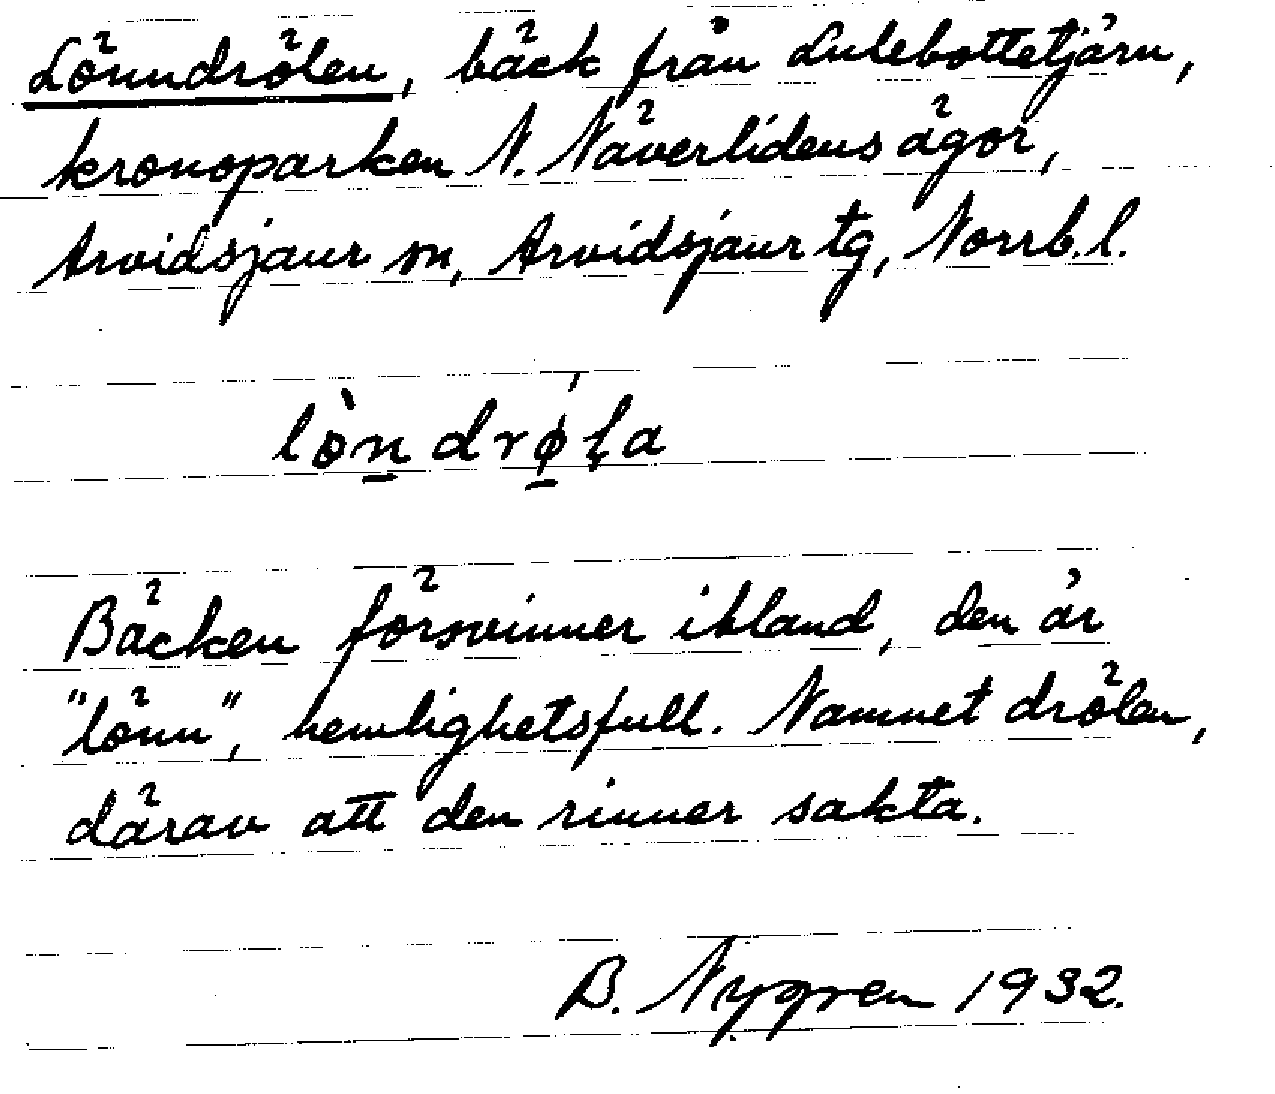 Lönndrölen, bäck från Lulebottetjärn,
kronoparken N. Näverlidens ägor,
Arvidsjaur sn, Arvidsjaur tg, Norrb. l.
lòn̠ drǿ̠ɭa
Bäcken försvinner ibland, den är
"lönn", hemlighetsfull. Namnet drölen,
därav att den rinner sakta.
B. Nygren 1932.